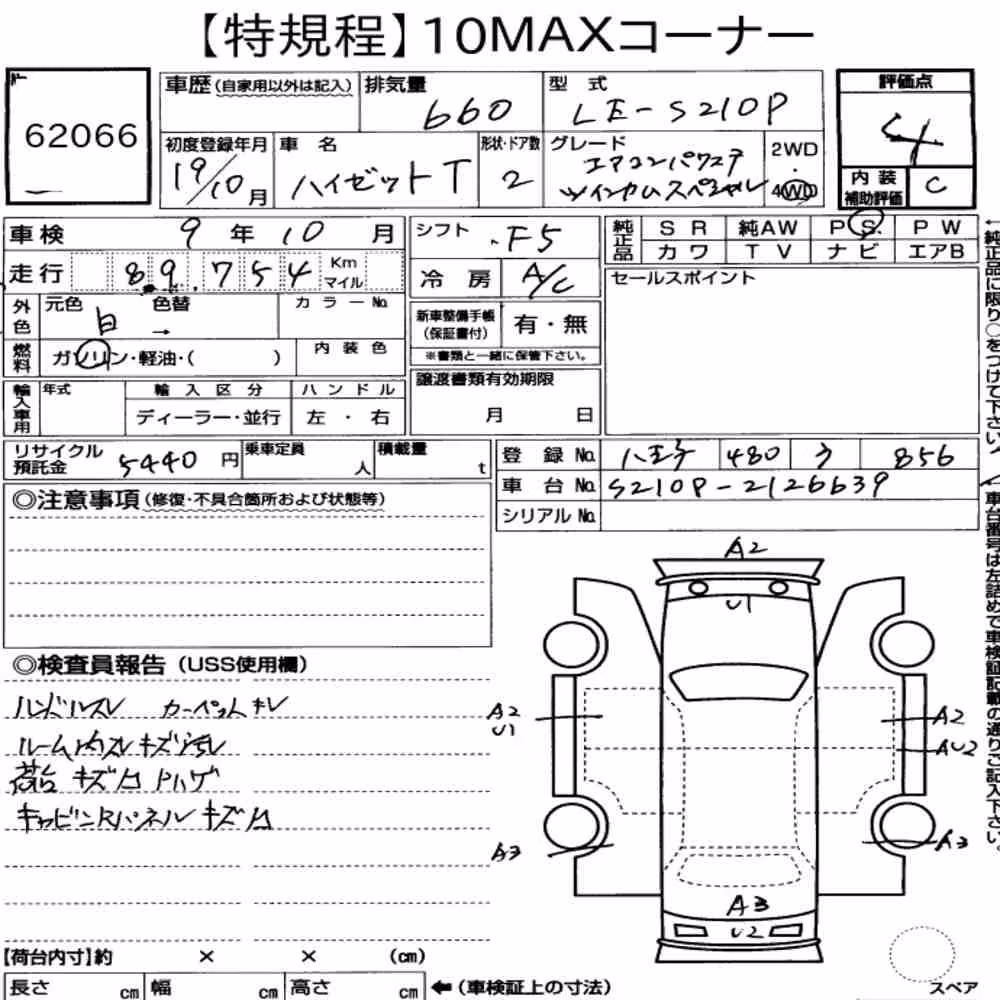 【特規程】10MAXコーナー
62066
車歴(自家用以外は記入) 排気量 660 型式 LE-S210P
初度登録年月 19/10月 車名 ハイゼットT 形状・ドア数 2 グレード エアコンパワステ ツインカムスペシャル 2WD・4WD
評価点 4
内装補助評価 C
車検 9年10月
走行 89,754 Km マイル
外色 元色 白 色替 → カラーNo.
燃料 ガソリン・軽油・( ) 内装色
輸入車用 年式 輸入区分 ディーラー・並行 ハンドル 左・右
シフト F5
冷房 A/C
新車整備手帳(保証書付) 有・無
※書類と一緒に保管下さい。
譲渡書類有効期限
月 日
純正品 SR 純AW PS PW
カワ TV ナビ エアB
セールスポイント
←純正品に限り○をつけて下さい
リサイクル預託金 5440円 乗車定員 人 積載量 t
登録No. 八王子 480 856
車台No. S210P-2126639
シリアルNo.
車台番号は左詰めで車検証記載の通りご記入下さい。
◎注意事項(修復・不具合箇所および状態等)
◎検査員報告(USS使用欄)
ハンドルスレ カーペットキレ
ルーム内スレキズ汚レ
荷台 キズ凹 Pハゲ
キャビンRパネル キズ凹
A2
U1
A2
U1
A2
AU2
A3
A3
A3
U2
【荷台内寸】約 × × (cm)
長さ cm 幅 cm 高さ cm ←(車検証上の寸法)
スペア